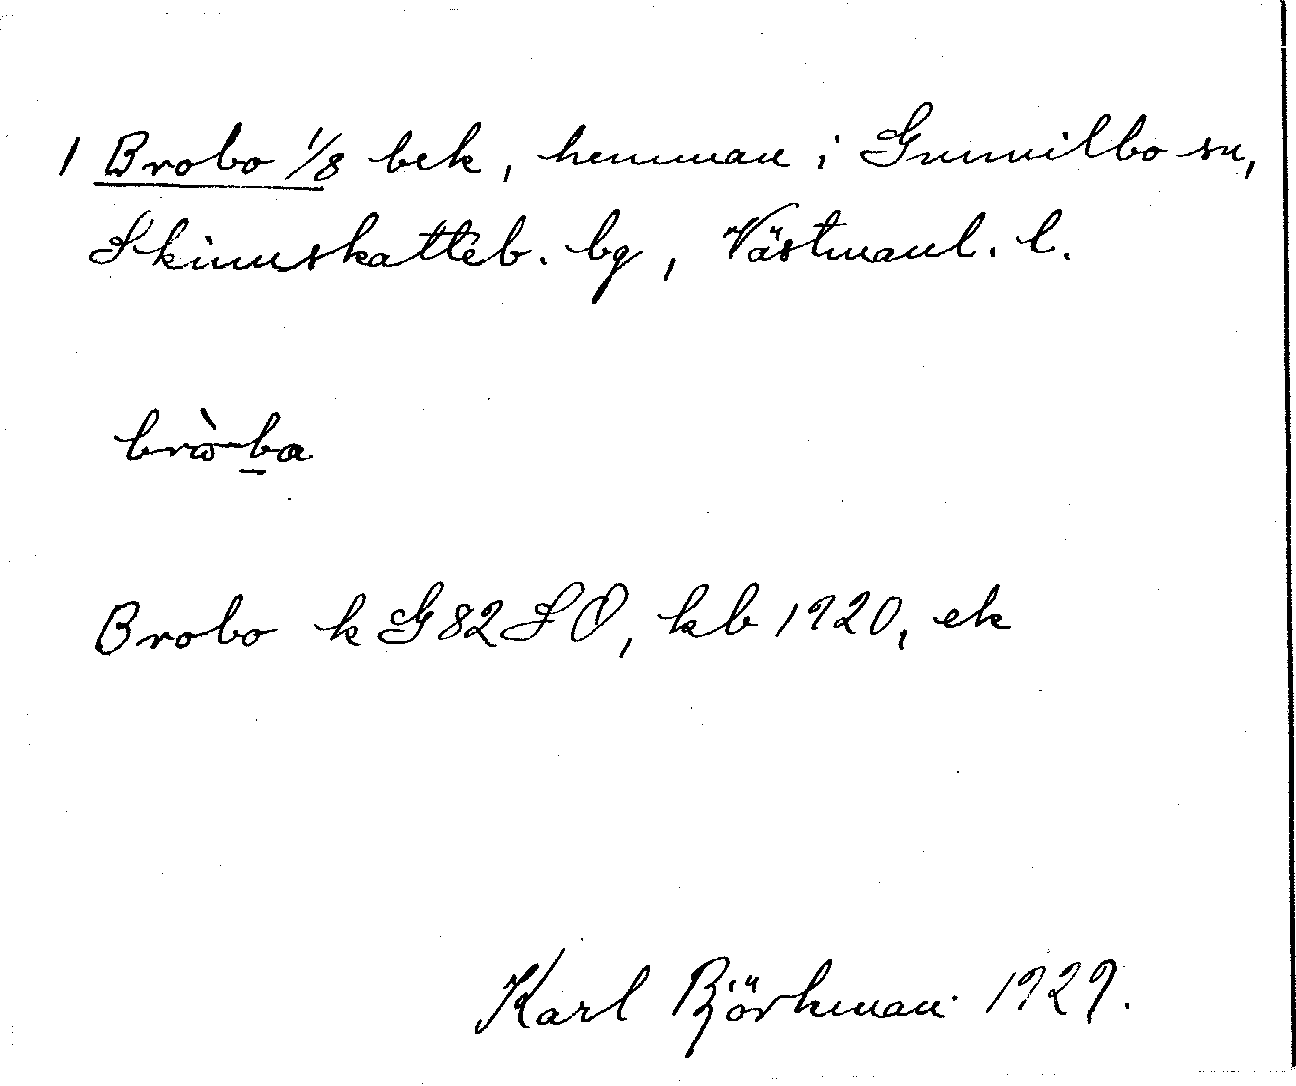 1 Brobo 1/8 bek, hemman i Gunnilbo sn,
Skinnskatteb. bg, Västmanl. l.
brὼba
Brobo k G 82 S O, kb 1920, ek
Karl Björkman 1929.